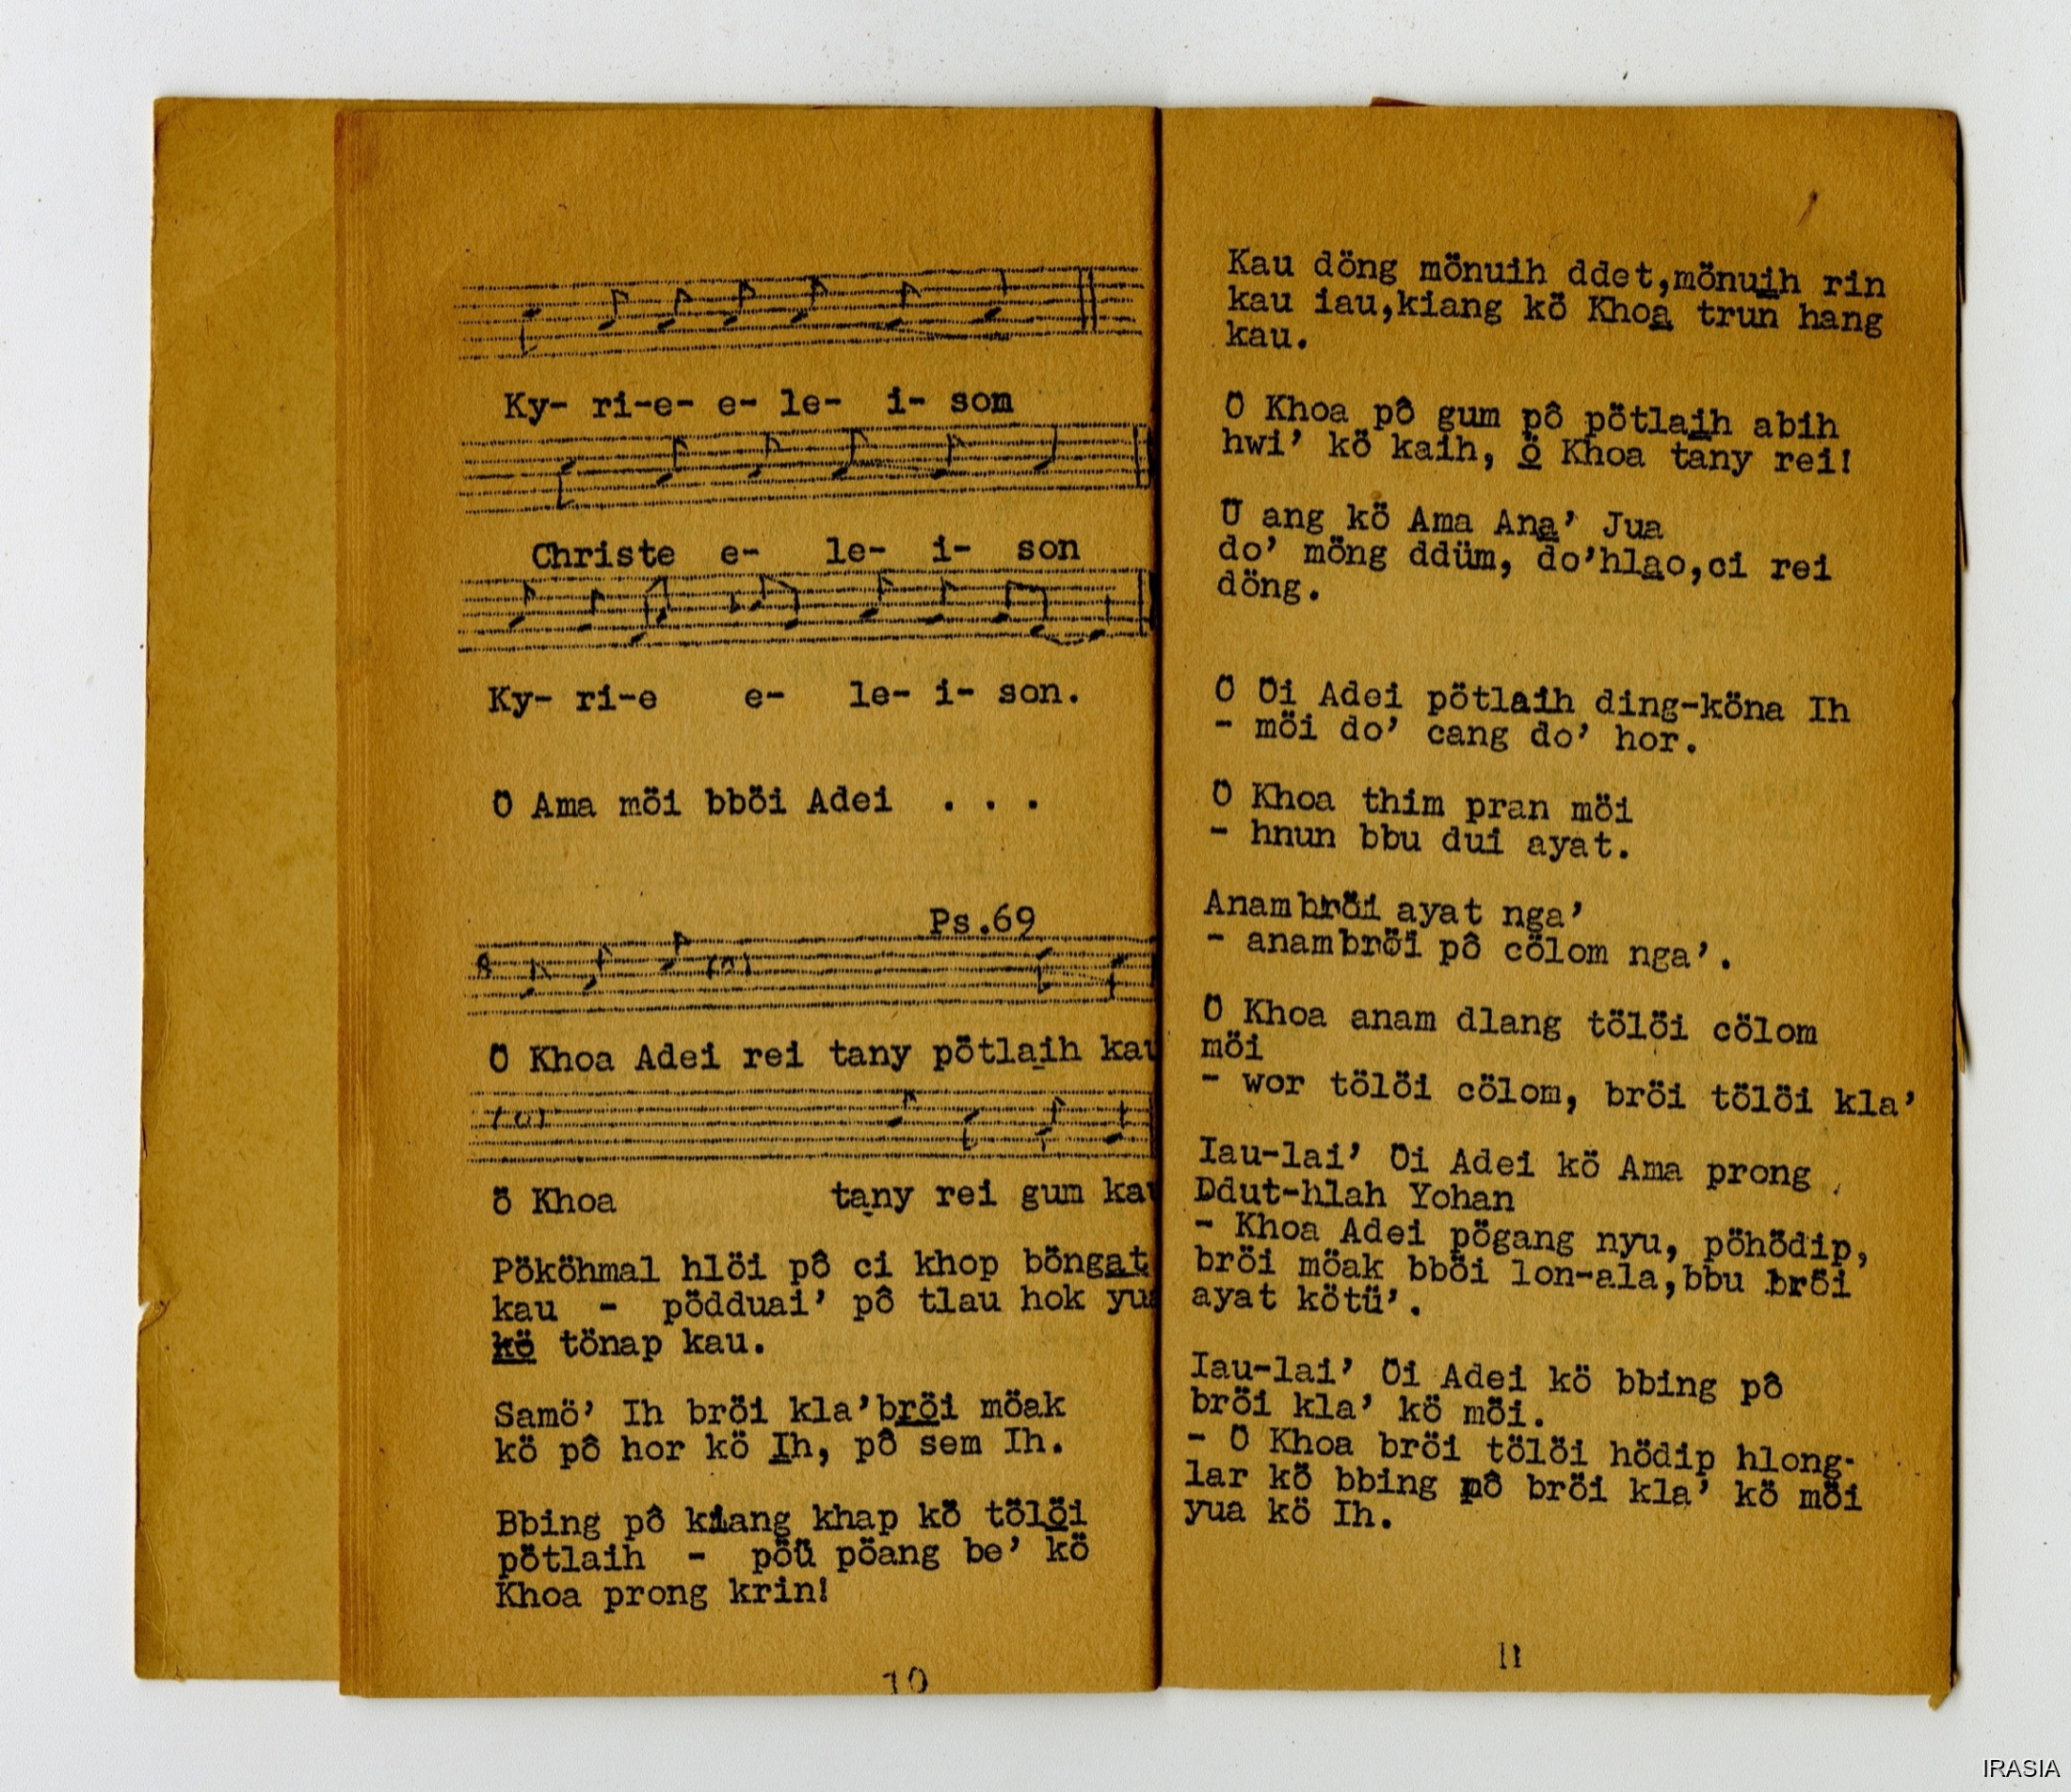 Ky- ri-e- e- le- i- son
Christe e- le- i- son
Ky- ri-e e- le- i- son.
Ö Ama möi bböi Adei . . .
Ps.69
Ö Khoa Adei rei tany pötlaih kau
ö Khoa tany rei gum kau
Pököhmal hlöi pô ci khop böngat
kau - pödduai’ pô tlau hok yua
kö tönap kau.
Samö’ Ih bröi kla’bröi möak
kö pô hor kö Ih, pô sem Ih.
Bbing pô kiang khap kö tölöi
pötlaih - pöü pöang be’ kö
Khoa prong krin!
10
Kau döng mönuih ddet,mönuih rin
kau iau,kiang kö Khoa trun hang
kau.
Ö Khoa pô gum pô pötlaih abih
hwi’ kö kaih, ö Khoa tany rei!
Ü ang kö Ama Ana’ Jua
do’ möng ddüm, do’hlao,ci rei
döng.
Ö Öi Adei pötlaih ding-köna Ih
- möi do’ cang do’ hor.
Ö Khoa thim pran möi
- hnun bbu dui ayat.
Anam bröi ayat nga’
- anam bröi pô cölom nga’.
Ö Khoa anam dlang tölöi cölom
möi
- wor tölöi cölom, bröi tölöi kla’
Iau-lai’ Öi Adei kö Ama prong
Ddut-hlah Yohan
- Khoa Adei pögang nyu, pöhödip,
bröi möak bböi lon-ala,bbu bröi
ayat kötü’.
Iau-lai’ Öi Adei kö bbing pô
bröi kla’ kö möi.
- Ö Khoa bröi tölöi hödip hlong-
lar kö bbing pô bröi kla’ kö möi
yua kö Ih.
11
IRASIA